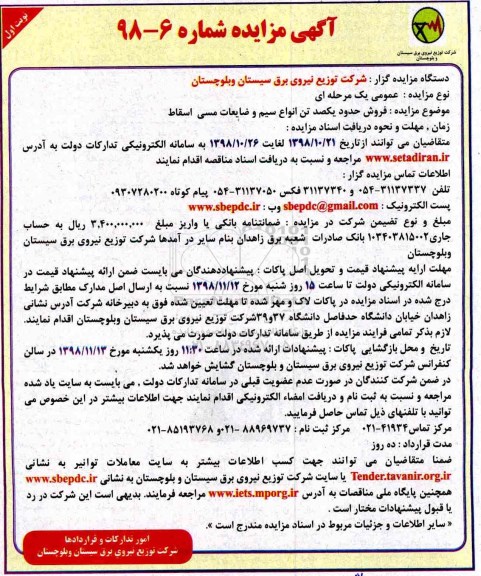 نوبت اول
آگهی مزایده شماره ۶-۹۸
شرکت توزیع نیروی برق سیستان
و بلوچستان
دستگاه مزایده گزار : شرکت توزیع نیروی برق سیستان وبلوچستان
نوع مزایده : عمومی یک مرحله ای
موضوع مزایده : فروش حدود یکصد تن انواع سیم و ضایعات مسی اسقاط
زمان , مهلت و نحوه دریافت اسناد مزایده :
متقاضیان می توانند ازتاریخ ۱۳۹۸/۱۰/۲۱ لغایت ۱۳۹۸/۱۰/۲۶ به سامانه الکترونیکی تدارکات دولت به آدرس
www.setadiran.ir مراجعه و نسبت به دریافت اسناد مناقصه اقدام نمایند
اطلاعات تماس مزایده گزار :
تلفن ۳۱۱۳۷۳۳۷-۰۵۴ و ۳۱۱۳۷۳۴۰ فکس ۳۱۱۳۷۰۵۰-۰۵۴ پیام کوتاه ۰۹۳۰۷۲۸۰۲۰۰
پست الکترونیک : sbepdc@gmail.com وب : www.sbepdc.ir
مبلغ و نوع تضیمن شرکت در مزایده : ضمانتنامه بانکی یا واریز مبلغ ۳,۴۰۰,۰۰۰,۰۰۰ ریال به حساب
جاری۱۰۳۴۰۳۸۱۵۰۰۲ بانک صادرات شعبه برق زاهدان بنام سایر در آمدها شرکت توزیع نیروی برق سیستان
وبلوچستان
مهلت ارایه پیشنهاد قیمت و تحویل اصل پاکات : پیشنهاددهندگان می بایست ضمن ارائه پیشنهاد قیمت در
سامانه الکترونیکی دولت تا ساعت ۱۵ روز شنبه مورخ ۱۳۹۸/۱۱/۱۲ نسبت به ارسال اصل مدارک مطابق شرایط
درج شده در اسناد مزایده در پاکات لاک و مهر شده تا مهلت تعیین شده فوق به دبیرخانه شرکت آدرس نشانی
زاهدان خیابان دانشگاه حدفاصل دانشگاه ۳۷و۳۹شرکت توزیع نیروی برق سیستان وبلوچستان اقدام نمایند.
لازم بذکر تمامی فرایند مزایده از طریق سامانه تدارکات دولت صورت می پذیرد.
تاریخ و محل بازگشایی پاکات : پیشنهادات ارائه شده در ساعت ۱۱:۳۰ روز یکشنبه مورخ ۱۳۹۸/۱۱/۱۳ در سالن
کنفرانس شرکت توزیع نیروی برق سیستان و بلوچستان گشایش خواهد شد.
در ضمن شرکت کنندگان در صورت عدم عضویت قبلی در سامانه تدارکات دولت , می بایست به سایت یاد شده
مراجعه و نسبت به ثبت نام و دریافت امضاء الکترونیکی اقدام نمایند جهت اطلاعات بیشتر در این خصوص می
توانید با تلفنهای ذیل تماس حاصل فرمایید.
مرکز تماس۴۱۹۳۴-۰۲۱ مرکز ثبت نام : ۸۸۹۶۹۷۳۷ -۰۲۱و ۸۵۱۹۳۷۶۸-۰۲۱
مدت قرارداد : ده روز
ضمنا متقاضیان می توانند جهت کسب اطلاعات بیشتر به سایت معاملات توانیر به نشانی
Tender.tavanir.org.ir یا سایت شرکت توزیع نیروی برق سیستان و بلوچستان به نشانی www.sbepdc.ir
همچنین پایگاه ملی مناقصات به آدرس www.iets.mporg.ir مراجعه فرمایند. بدیهی است این شرکت در رد
یا قبول پیشنهادات مختار است .
« سایر اطلاعات و جزئیات مربوط در اسناد مزایده مندرج است ».
امور تدارکات و قراردادها
شرکت توزیع نیروی برق سیستان وبلوچستان